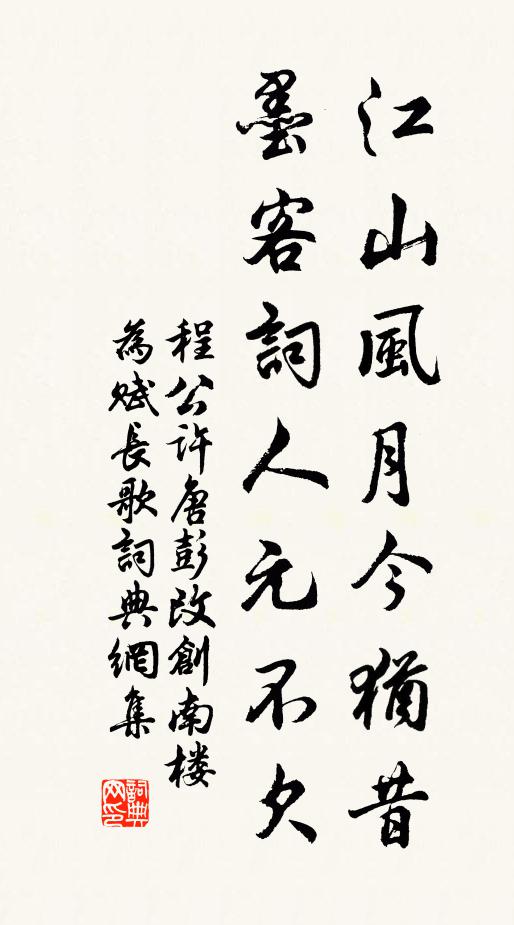 江山風月今猶昔
墨客詞人元不欠
程公許唐彭改創南楼
為賦長歌詞典網集
詞典网印